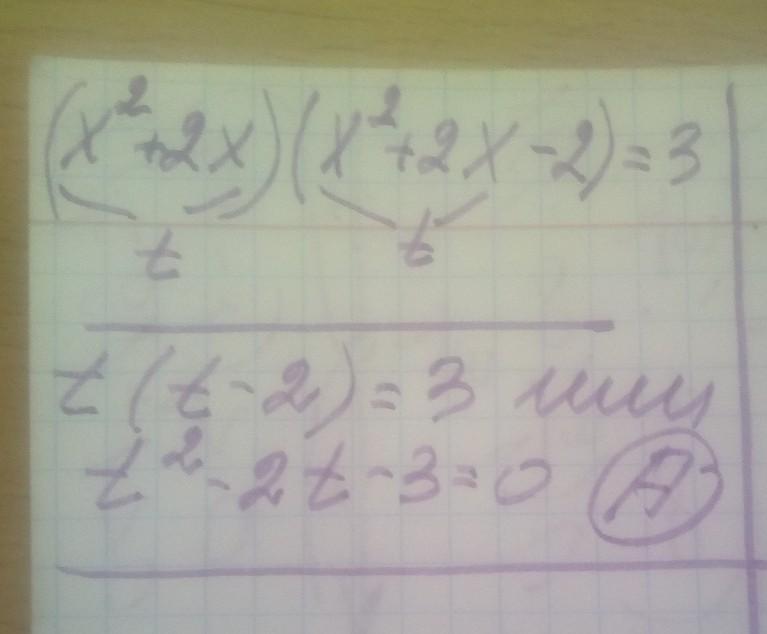 (x²+2x)(x²+2x-2)=3
t t
t(t-2)=3 или
t²-2t-3=0 А